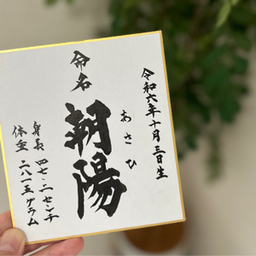 令和六年十月三日生
命名
あさひ
朝陽
身長 四七・二センチ
体重 二八一五グラム